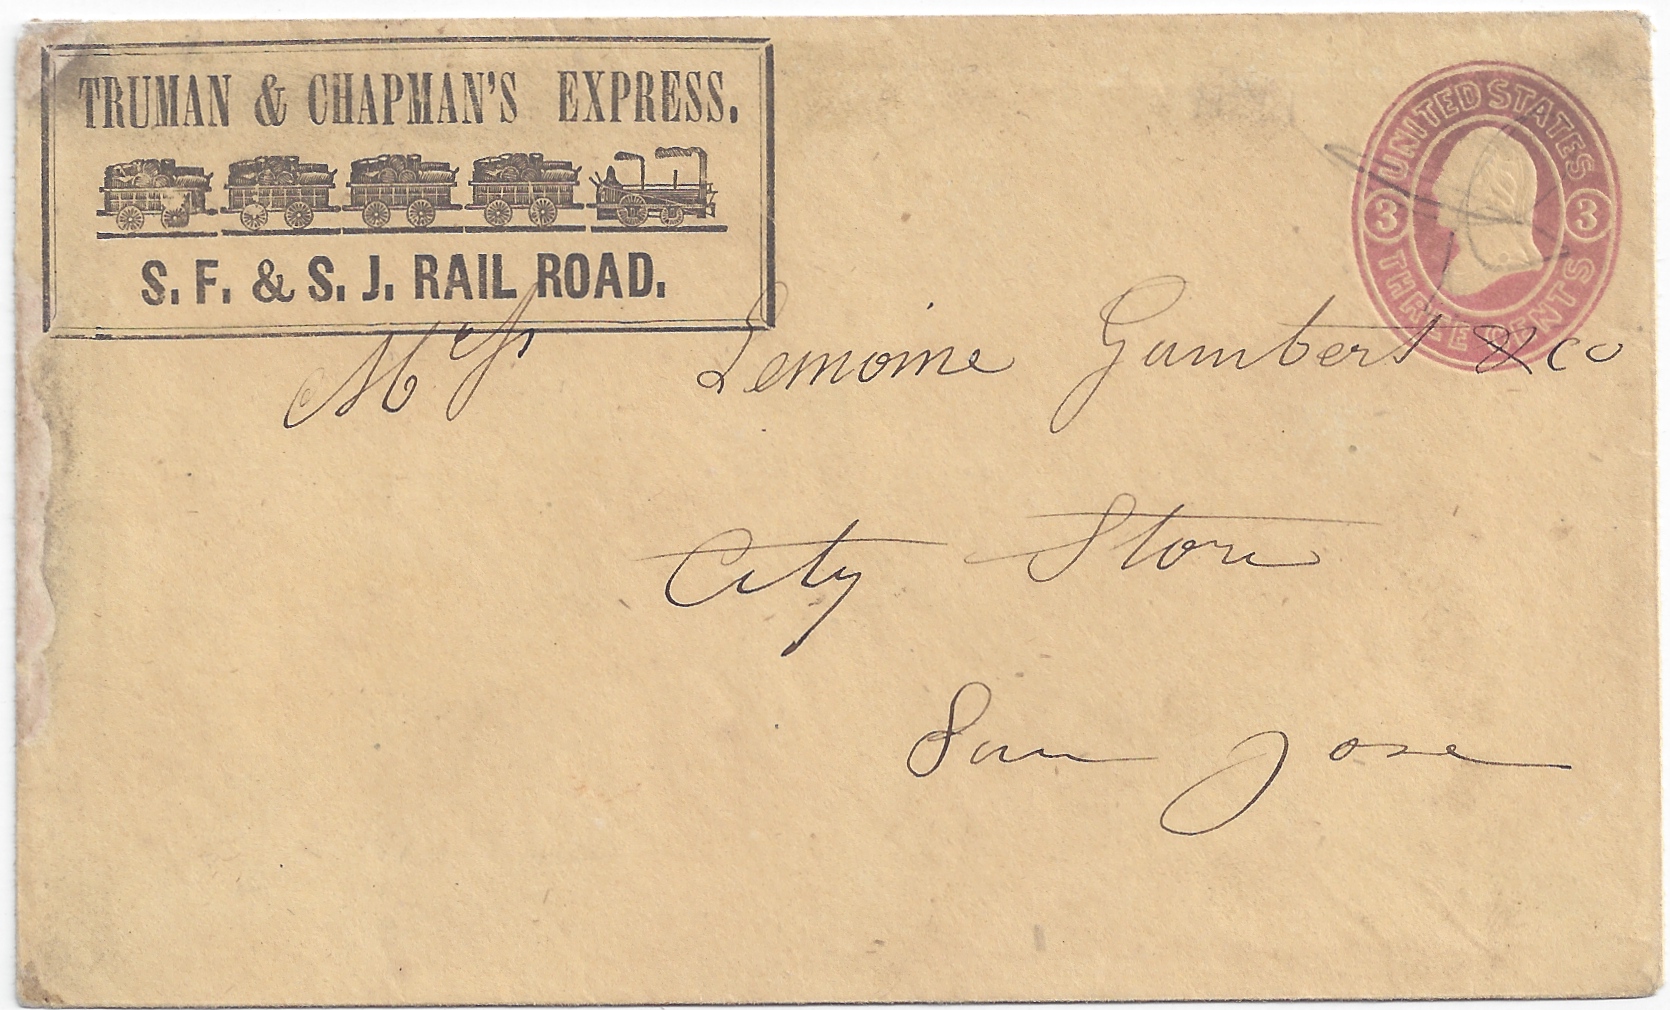 TRUMAN & CHAPMAN'S EXPRESS.
S. F. & S. J. RAIL ROAD.
UNITED STATES
3 3
THREE CENTS
Mess Lemoine Gambert & Co
City Store
San Jose